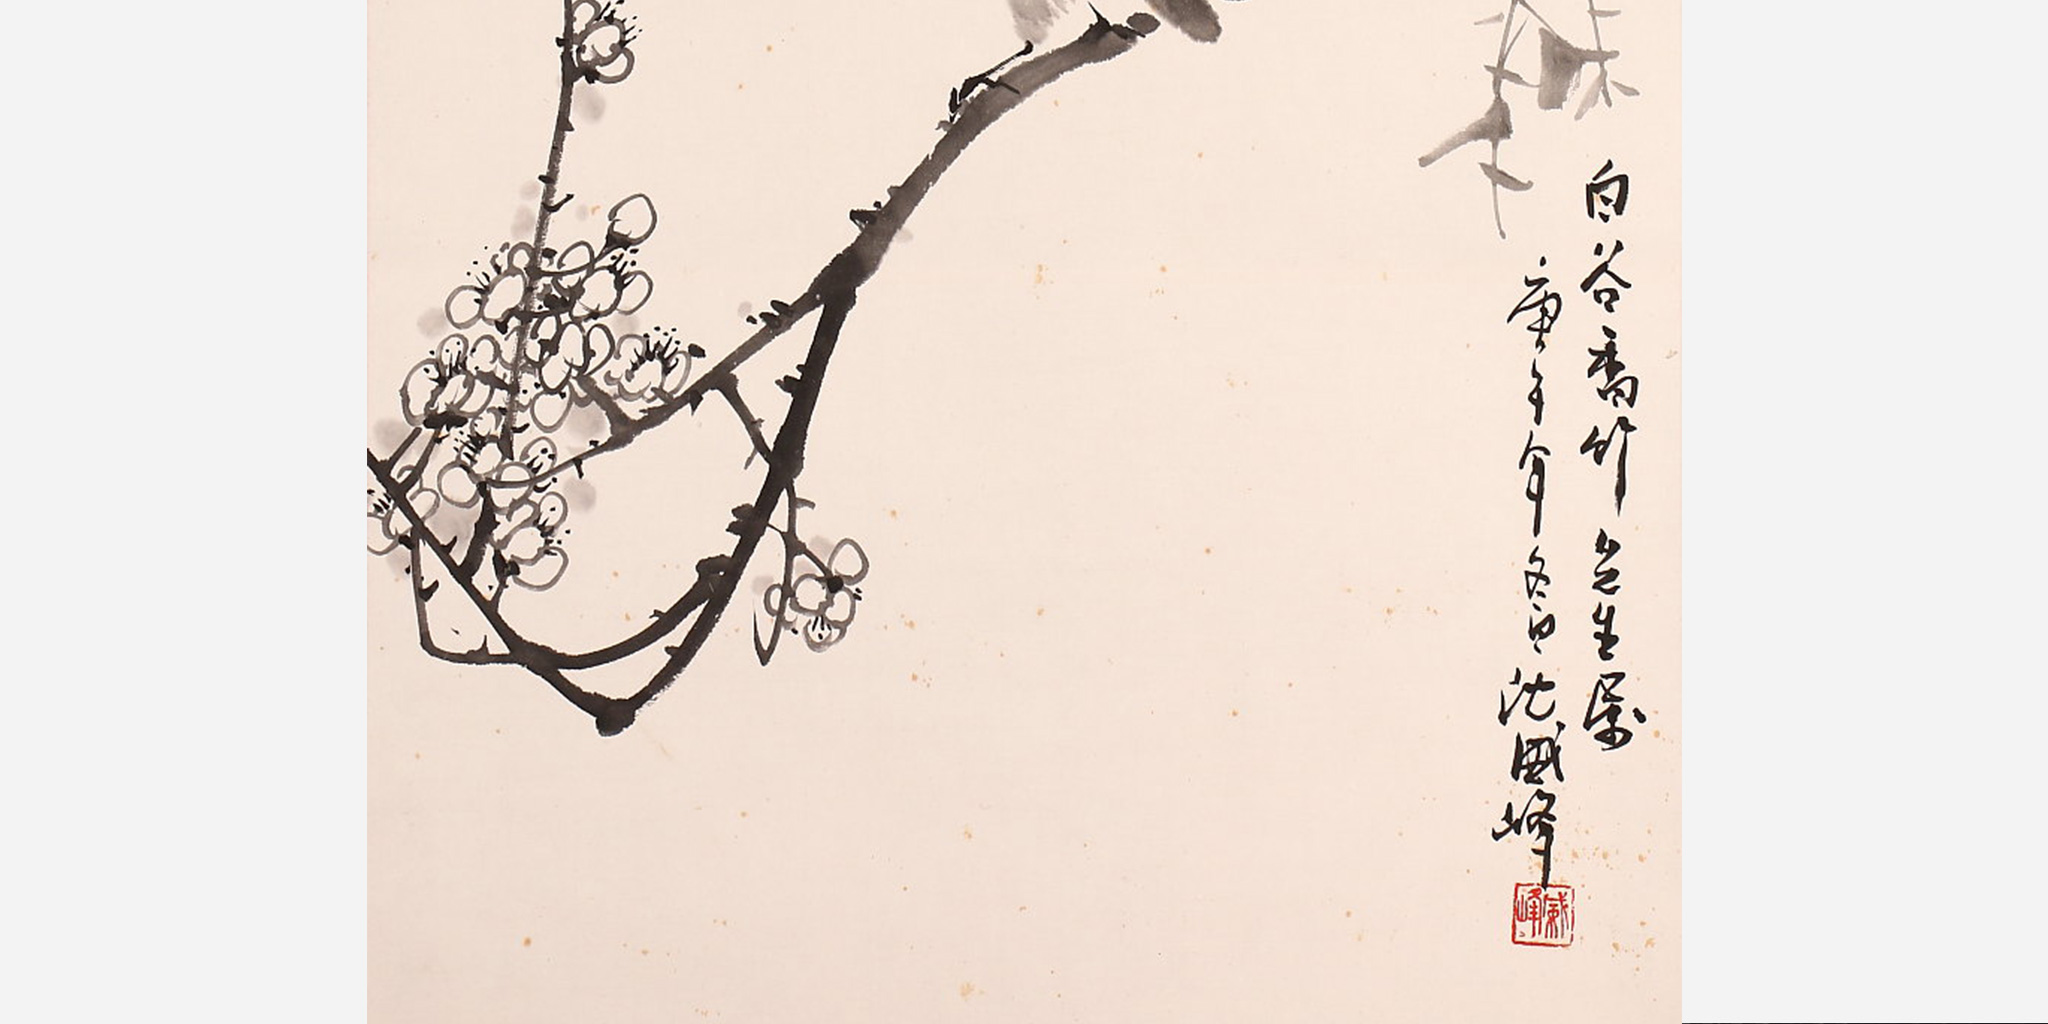 白谷喬竹先生屬
庚午年冬日沈威峰
威峰